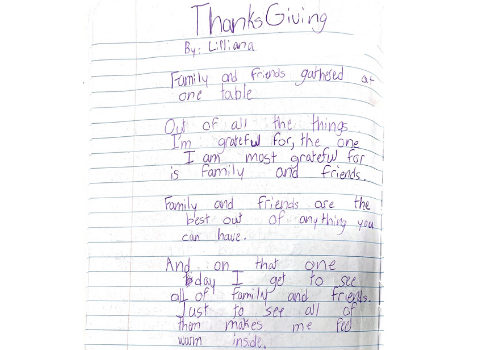 ThanksGiving
By: Lilliana
Family and friends gathered at
one table
Out of all the things
I'm grateful for, the one
I am most grateful for
is Family and friends.
Family and friends are the
best out of anything you
can have.
And on that one
day I get to see
all of family and friends.
Just to see all of
them makes me feel
warm inside.